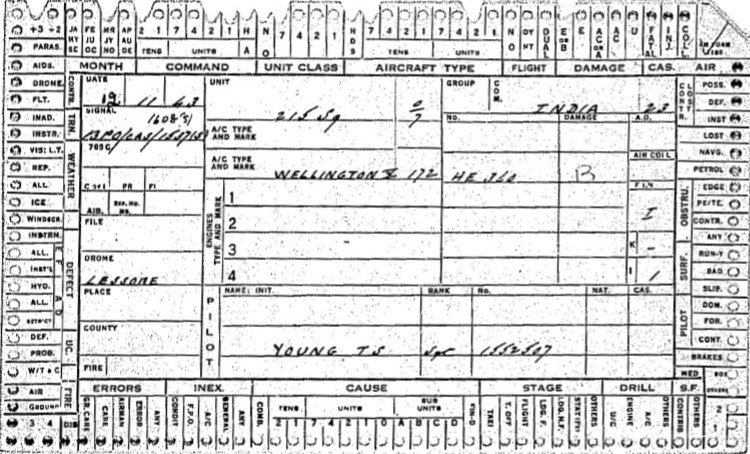 +3 +2 JA MY SE FE JU OC MR JU NO AP AU DE 2 1 7 4 2 1 H A N O 7 4 2 1 7 4 2 1 NO DUAL E OR B E AC OR A AC U FATAL INJ. COL.
PARAS. TENS UNITS TENS UNITS
AIDS. MONTH COMMAND UNIT CLASS AIRCRAFT TYPE FLIGHT DAMAGE CAS. AIR
DROME CONTR. DATE UNIT GROUP COM. CONTR. POSS.
FLT. 12 11 43 215 Sq INDIA 23 DEF.
INAD. TRN. SIGNAL NO. DAMAGE A.D. INST
INSTR. A/C TYPE AND MARK LOST
VIS: L.T. WEATHER 765C AIR COLL NAVG.
REP. A/C TYPE AND MARK WELLINGTON X 172 HE 360 B PETROL
ALL. C of I PR FI FIN OBSTRU. EDGE
ICE AIR. REP. No. ENGINES TYPE AND MARK 1 I PE/TE.
WINDSCR. FILE 2 CONTR.
INSTRN. DEFECT 3 K - ANY
ALL. DROME SURF. RUN-Y
INST'L LESSORE 4 I / BAD
HYD. PLACE PILOT NAME: INIT. RANK No. NAT. CAS. PILOT SLIP.
ALL. DOM.
RESTRICT COUNTY FOR.
DEF. UC. YOUNG TS Sgt 1552507 CONT.
PROB. FIRE BRAKES
W/T & C MED BOX
AIR FIRE ERRORS INEX. CAUSE STAGE DRILL S.F. OTHERS
GROUND GR. CARE CARE AIRMAN ERROR ANY CONDIT F.P.O. A/C GENERAL ANY COMB. TENS UNITS SUB UNITS FIN-D TAXI T. OFF FLIGHT LDG. F. LDG. N.F. STAT'RY OTHERS U/C ENGINE A/C OTHERS CONTRIB OTHERS 2 1
3 4 DIS 2 1 7 4 2 1 0 A B C D